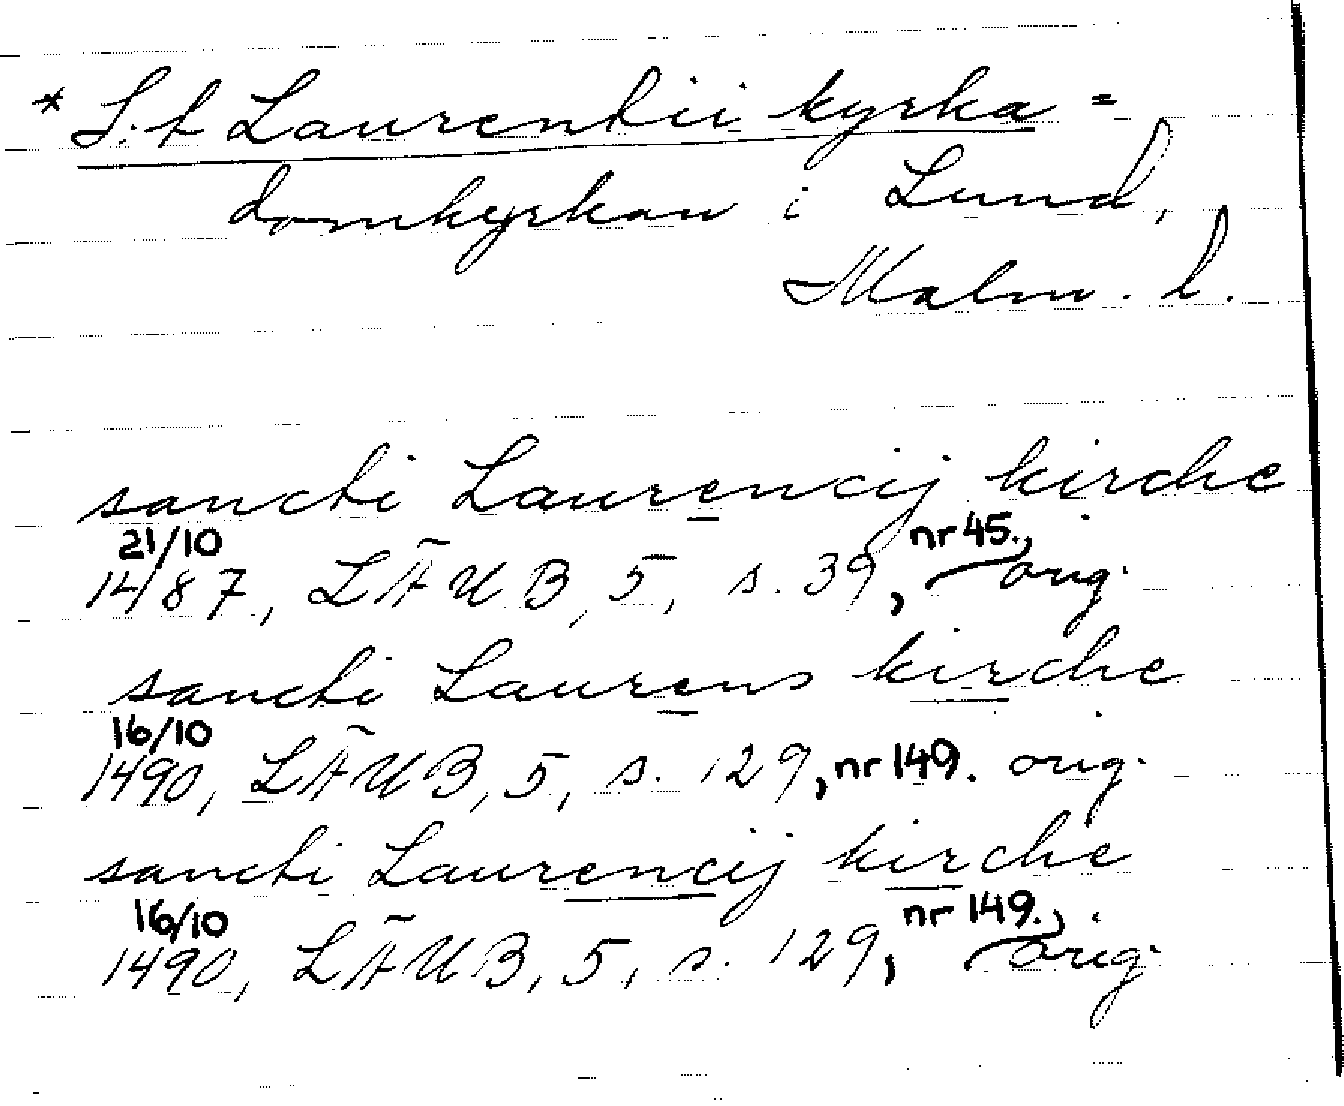 * S:t Laurentii kyrka =
domkyrkan i Lund,
Malm. l.
sancti Laurencij kirche
21/10 nr 45.,
1487, LÄUB, 5, s. 39, orig.
sancti Laurens kirche
16/10
1490, LÄUB, 5, s. 129, nr 149. orig.
sancti Laurencij kirche
16/10 nr 149.,
1490, LÄUB, 5, s. 129, orig.